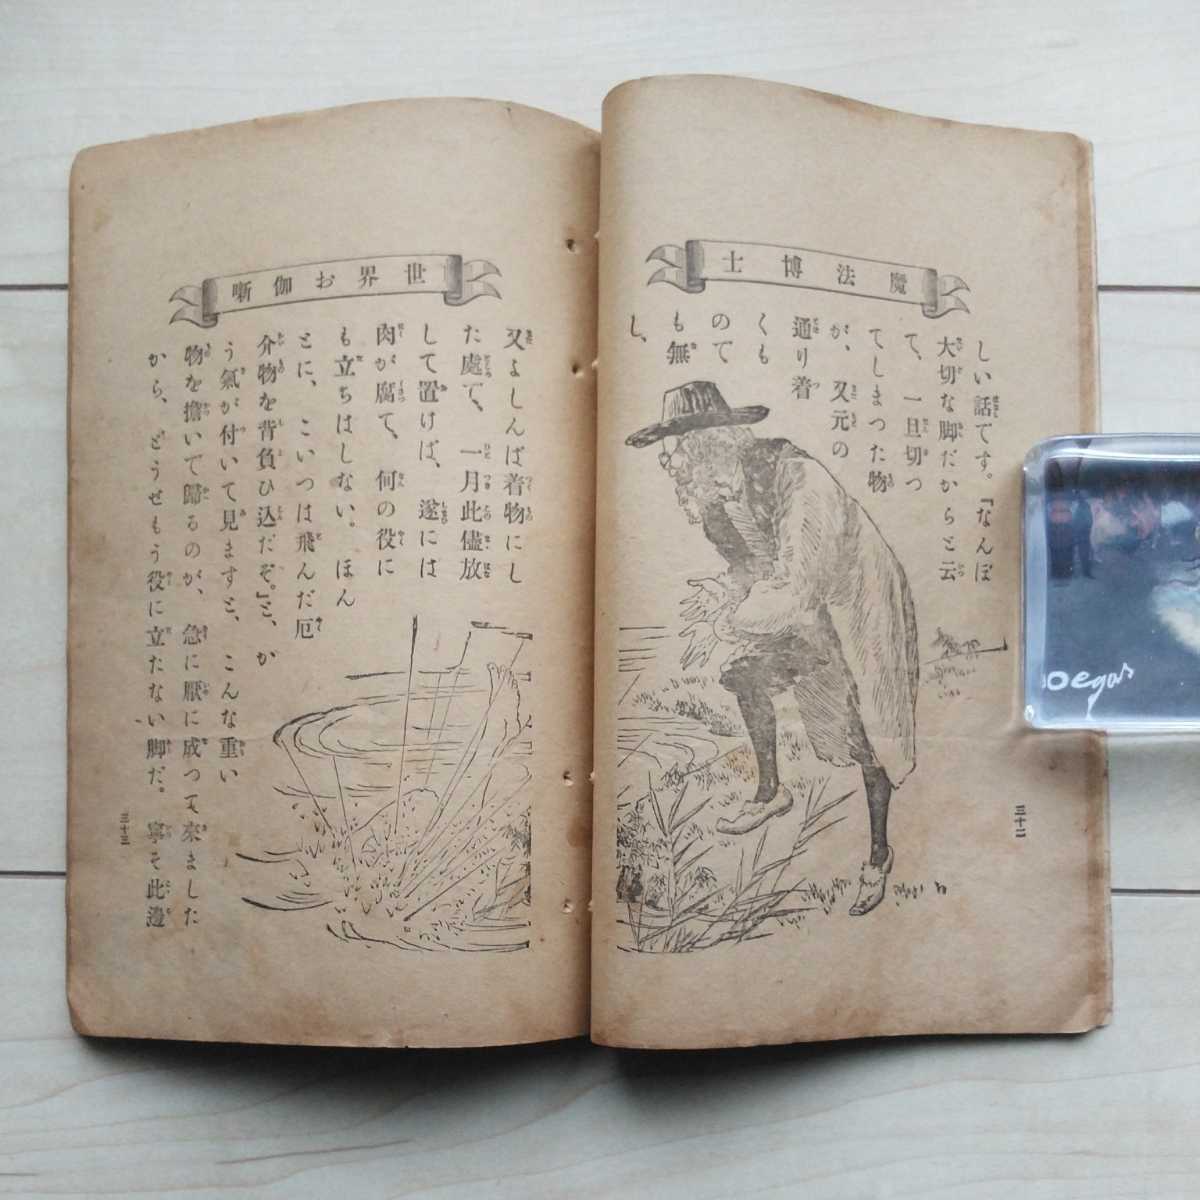 魔法博士
しい話です。「なんぼ
大切な脚だからと云
て、一旦切つ
てしまつた物
が、又元の
通り着
くも
ので
も無
し、
三十二
世界お伽噺
又よしんば着物にし
た處で、一月此儘放
して置けば、遂には
肉が腐て、何の役に
も立ちはしない。ほん
とに、こいつは飛んだ厄
介物を背負ひ込だぞ。」と、か
う氣が付いて見ますと、こんな重い
物を擔いで歸るのが、急に厭に成つて來ました
から、どうせもう役に立たない脚だ。寧そ此邊
三十三
oegar